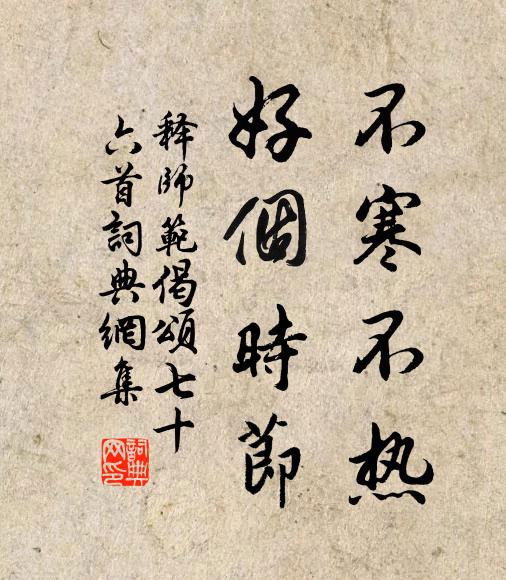 不寒不热
好個時節
释師範偈頌七十
六首詞典網集
詞典
网印